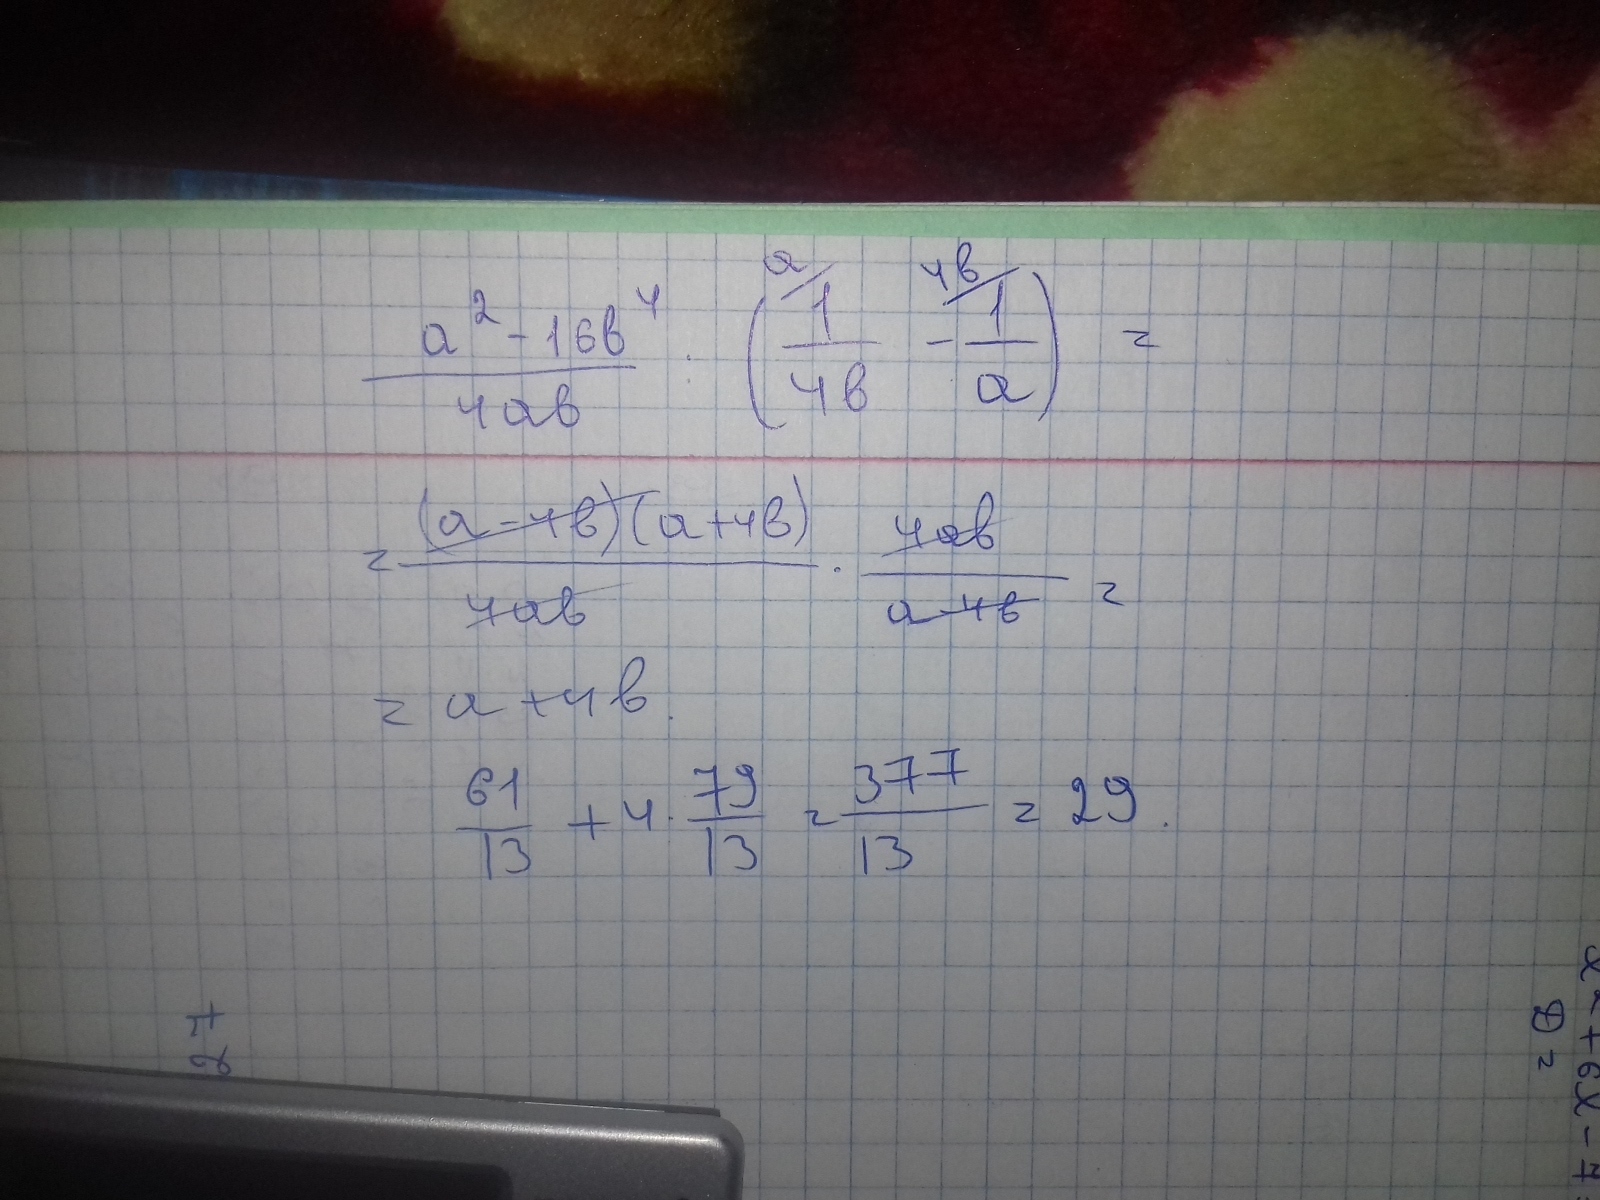 (a² - 16b⁴)/(4ab) : (a/ 1/(4b) - 4b/ 1/a) =
= ((a-4b)(a+4b))/(4ab) · (4ab)/(a-4b) =
= a+4b.
61/13 + 4 · 79/13 = 377/13 = 29.
x² + 6x - 7
D =